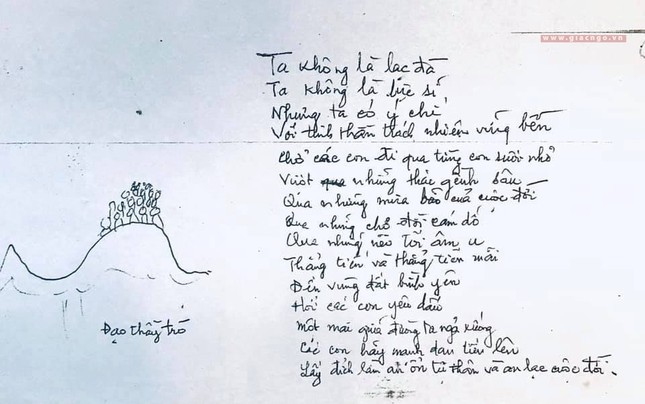 www.giacngo.vn
Ta không là lạc đà
Ta không là lực sĩ
Nhưng ta có ý chí
Với tinh thần trách nhiệm vững bền
Chở các con đi qua từng con suối nhỏ
Vượt qua những thác gềnh sâu
Qua những mùa bão của cuộc đời
Qua những chỗ cám dỗ
Qua những nẻo tối âm u
Thẳng tiến và thẳng tiến mãi
Đến vùng đất bình yên
Hỡi các con yêu dấu
Một mai giữa đường ta ngả xuống
Các con hãy mạnh dạn tiến lên
Lấy đích làm an ổn tự thân và an lạc cuộc đời.
Đạo thầy trò